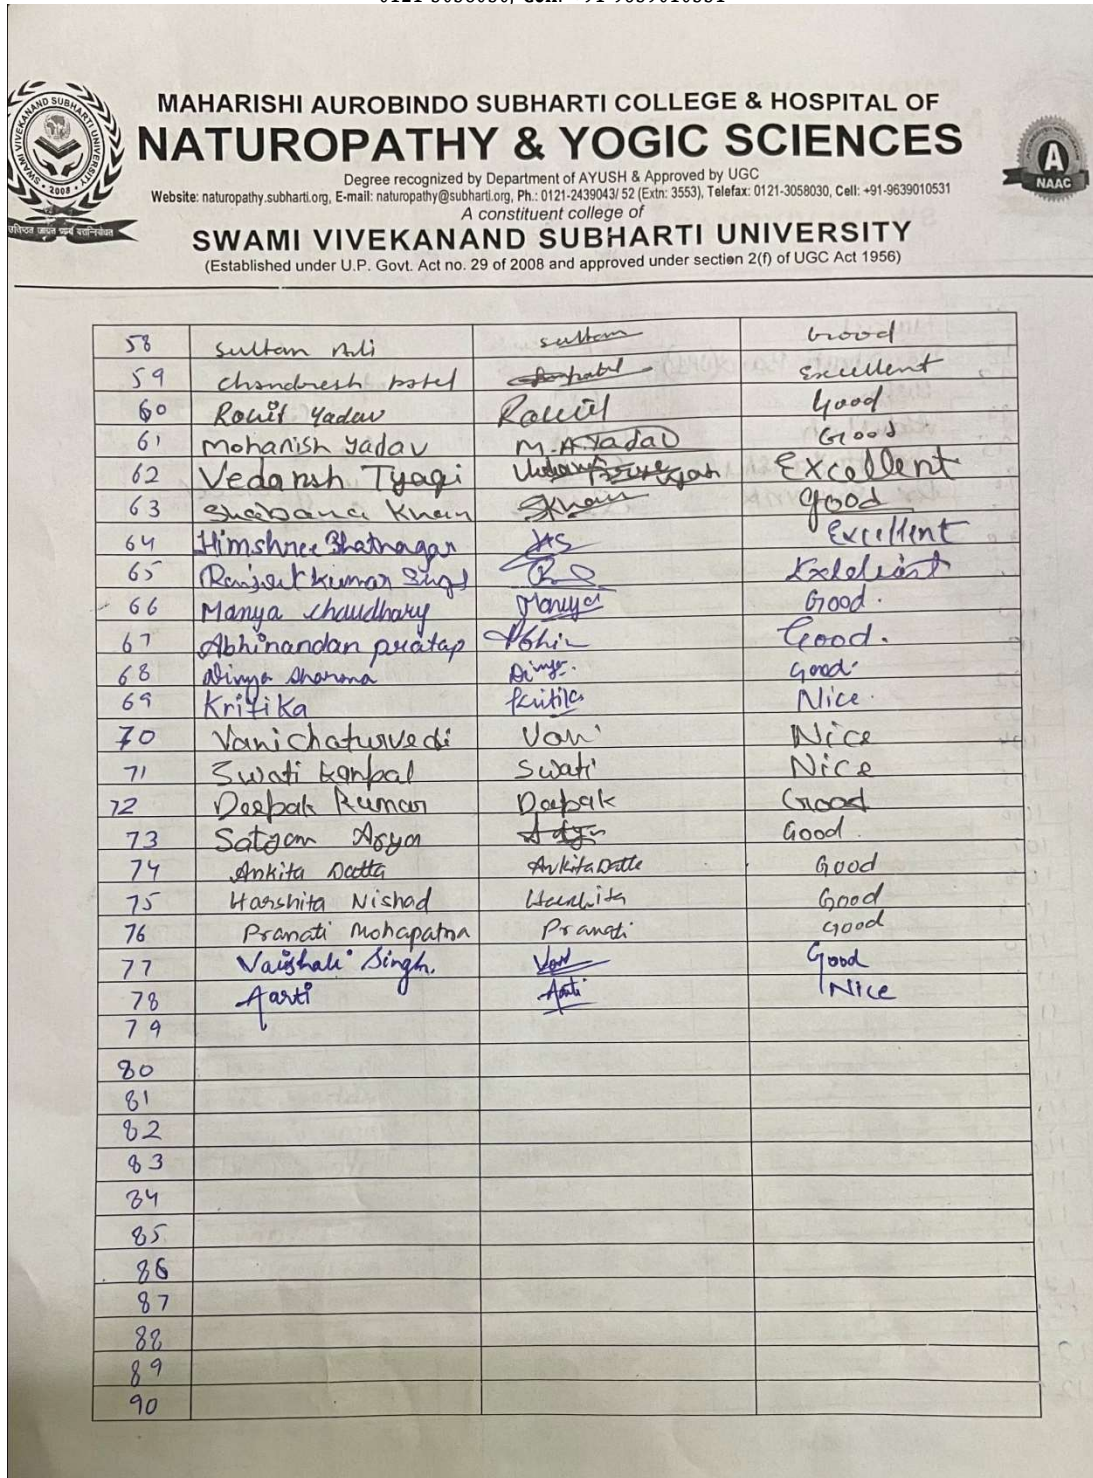 SWAMI VIVEKANAND SUBHARTI UNIVERSITY
2008
MAHARISHI AUROBINDO SUBHARTI COLLEGE & HOSPITAL OF
NATUROPATHY & YOGIC SCIENCES
Degree recognized by Department of AYUSH & Approved by UGC
Website: naturopathy.subharti.org, E-mail: naturopathy@subharti.org, Ph.: 0121-2439043/ 52 (Extn: 3553), Telefax: 0121-3058030, Cell: +91-9639010531
A constituent college of
SWAMI VIVEKANAND SUBHARTI UNIVERSITY
(Established under U.P. Govt. Act no. 29 of 2008 and approved under section 2(f) of UGC Act 1956)
A
NAAC
58 Sultan Ali Sultan Good
59 Chandresh patel Excellent
60 Rohit Yadav Rohit Good
61 Mohanish Yadav M.A Yadav Good
62 Vedansh Tyagi Excellent
63 Shabana Khan SKhan Good
64 Himshree Bhatnagar HS Excellent
65 Ranjeet kumar Singh
66 Manya chaudhary Manya Good.
67 Abhinandan pratap Abhin Good.
68 Divya Sharma Divya. Good.
69 Kritika Kritika Nice.
70 Vani chaturvedi Vani Nice
71 Swati Swati Nice
72 Deepak Kumar Deepak Good
73 Satyam Good.
74 Ankita Datta Ankita Datta Good
75 Harshita Nishad Harshita Good
76 Pranati Mohapatra Pranati Good
77 Vaishali Singh. Good
78 Aarti Aarti Nice
79
80
81
82
83
84
85
86
87
88
89
90